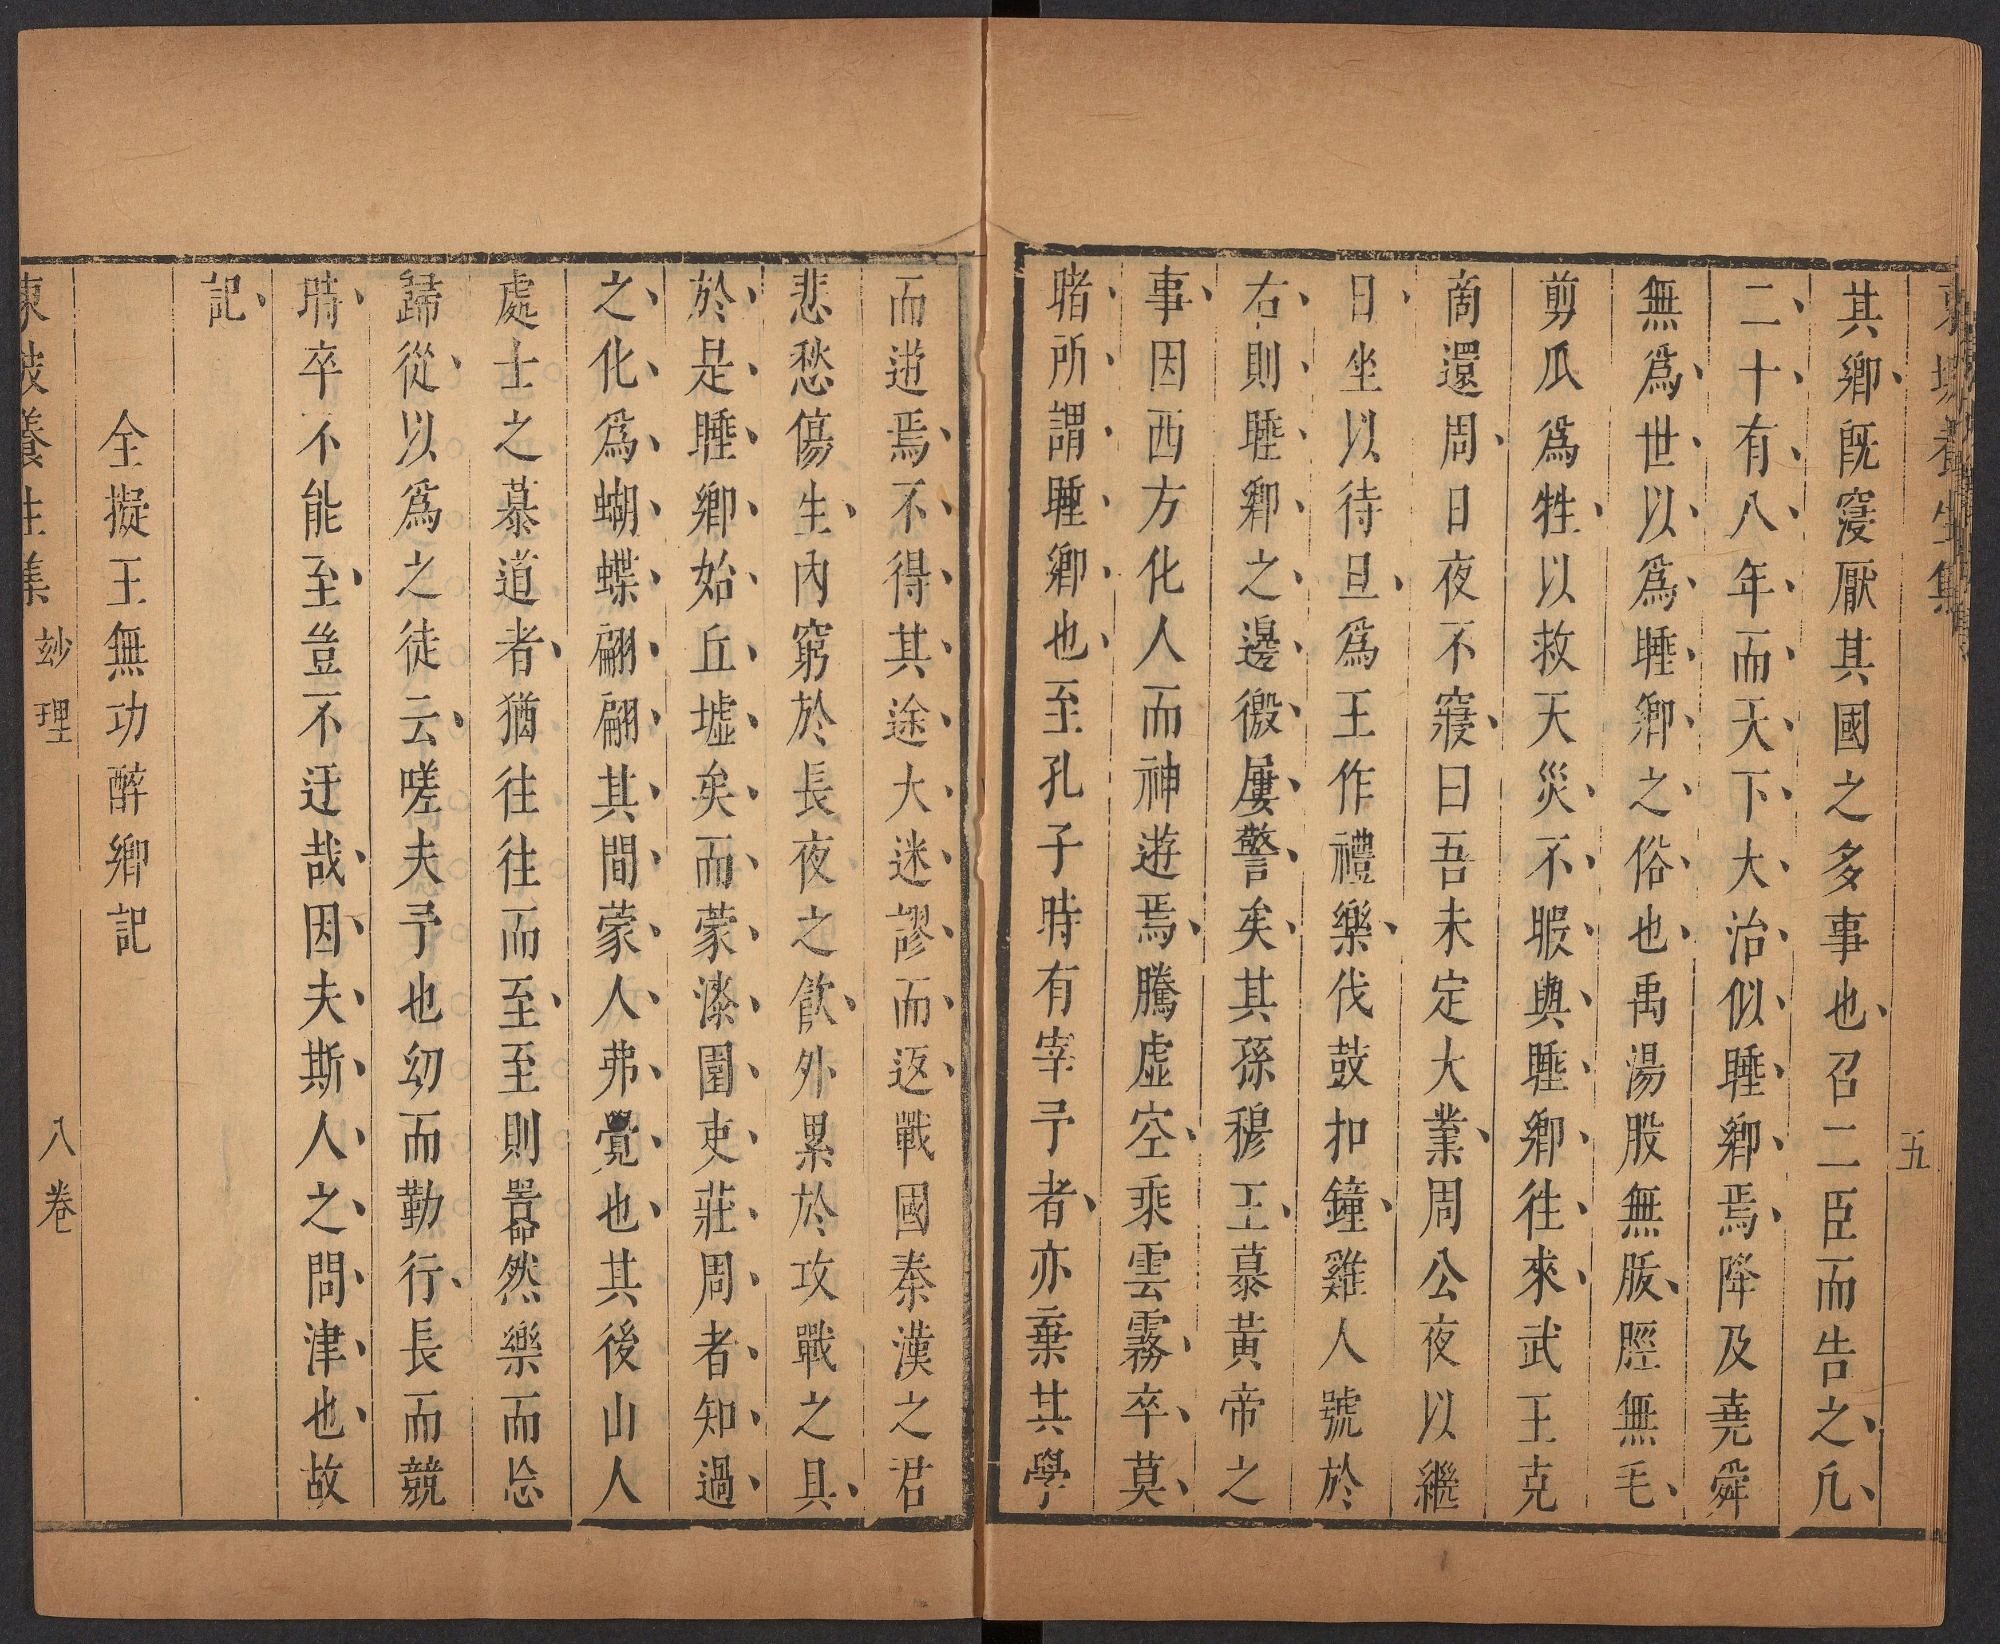 東坡養生集
五
其鄉既寖厭其國之多事也召二臣而告之凡
二十有八年而天下大治似睡鄉焉降及堯舜
無爲世以爲睡鄉之俗也禹湯股無胈脛無毛
剪爪爲牲以救天災不暇與睡鄉往來武王克
商還周日夜不寢曰吾未定大業周公夜以繼
日坐以待旦爲王作禮樂伐鼓扣鐘雞人號於
右則睡鄉之邊徼屢警矣其孫穆王慕黃帝之
事因西方化人而神遊焉騰虛空乘雲霧卒莫
睹所謂睡鄉也至孔子時有宰予者亦棄其學
而遊焉不得其途大迷謬而返戰國秦漢之君
悲愁傷生內窮於長夜之飲外累於攻戰之具
於是睡鄉始丘墟矣而蒙漆園吏莊周者知過
之化爲蝴蝶翩翩其間蒙人弗覺也其後山人
處士之慕道者猶往往而至至則嚣然樂而忘
歸從以爲之徒云嗟夫予也幼而勤行長而競
時卒不能至豈不迂哉因夫斯人之問津也故
記
全擬王無功醉鄉記
東坡養生集
玅理
八卷